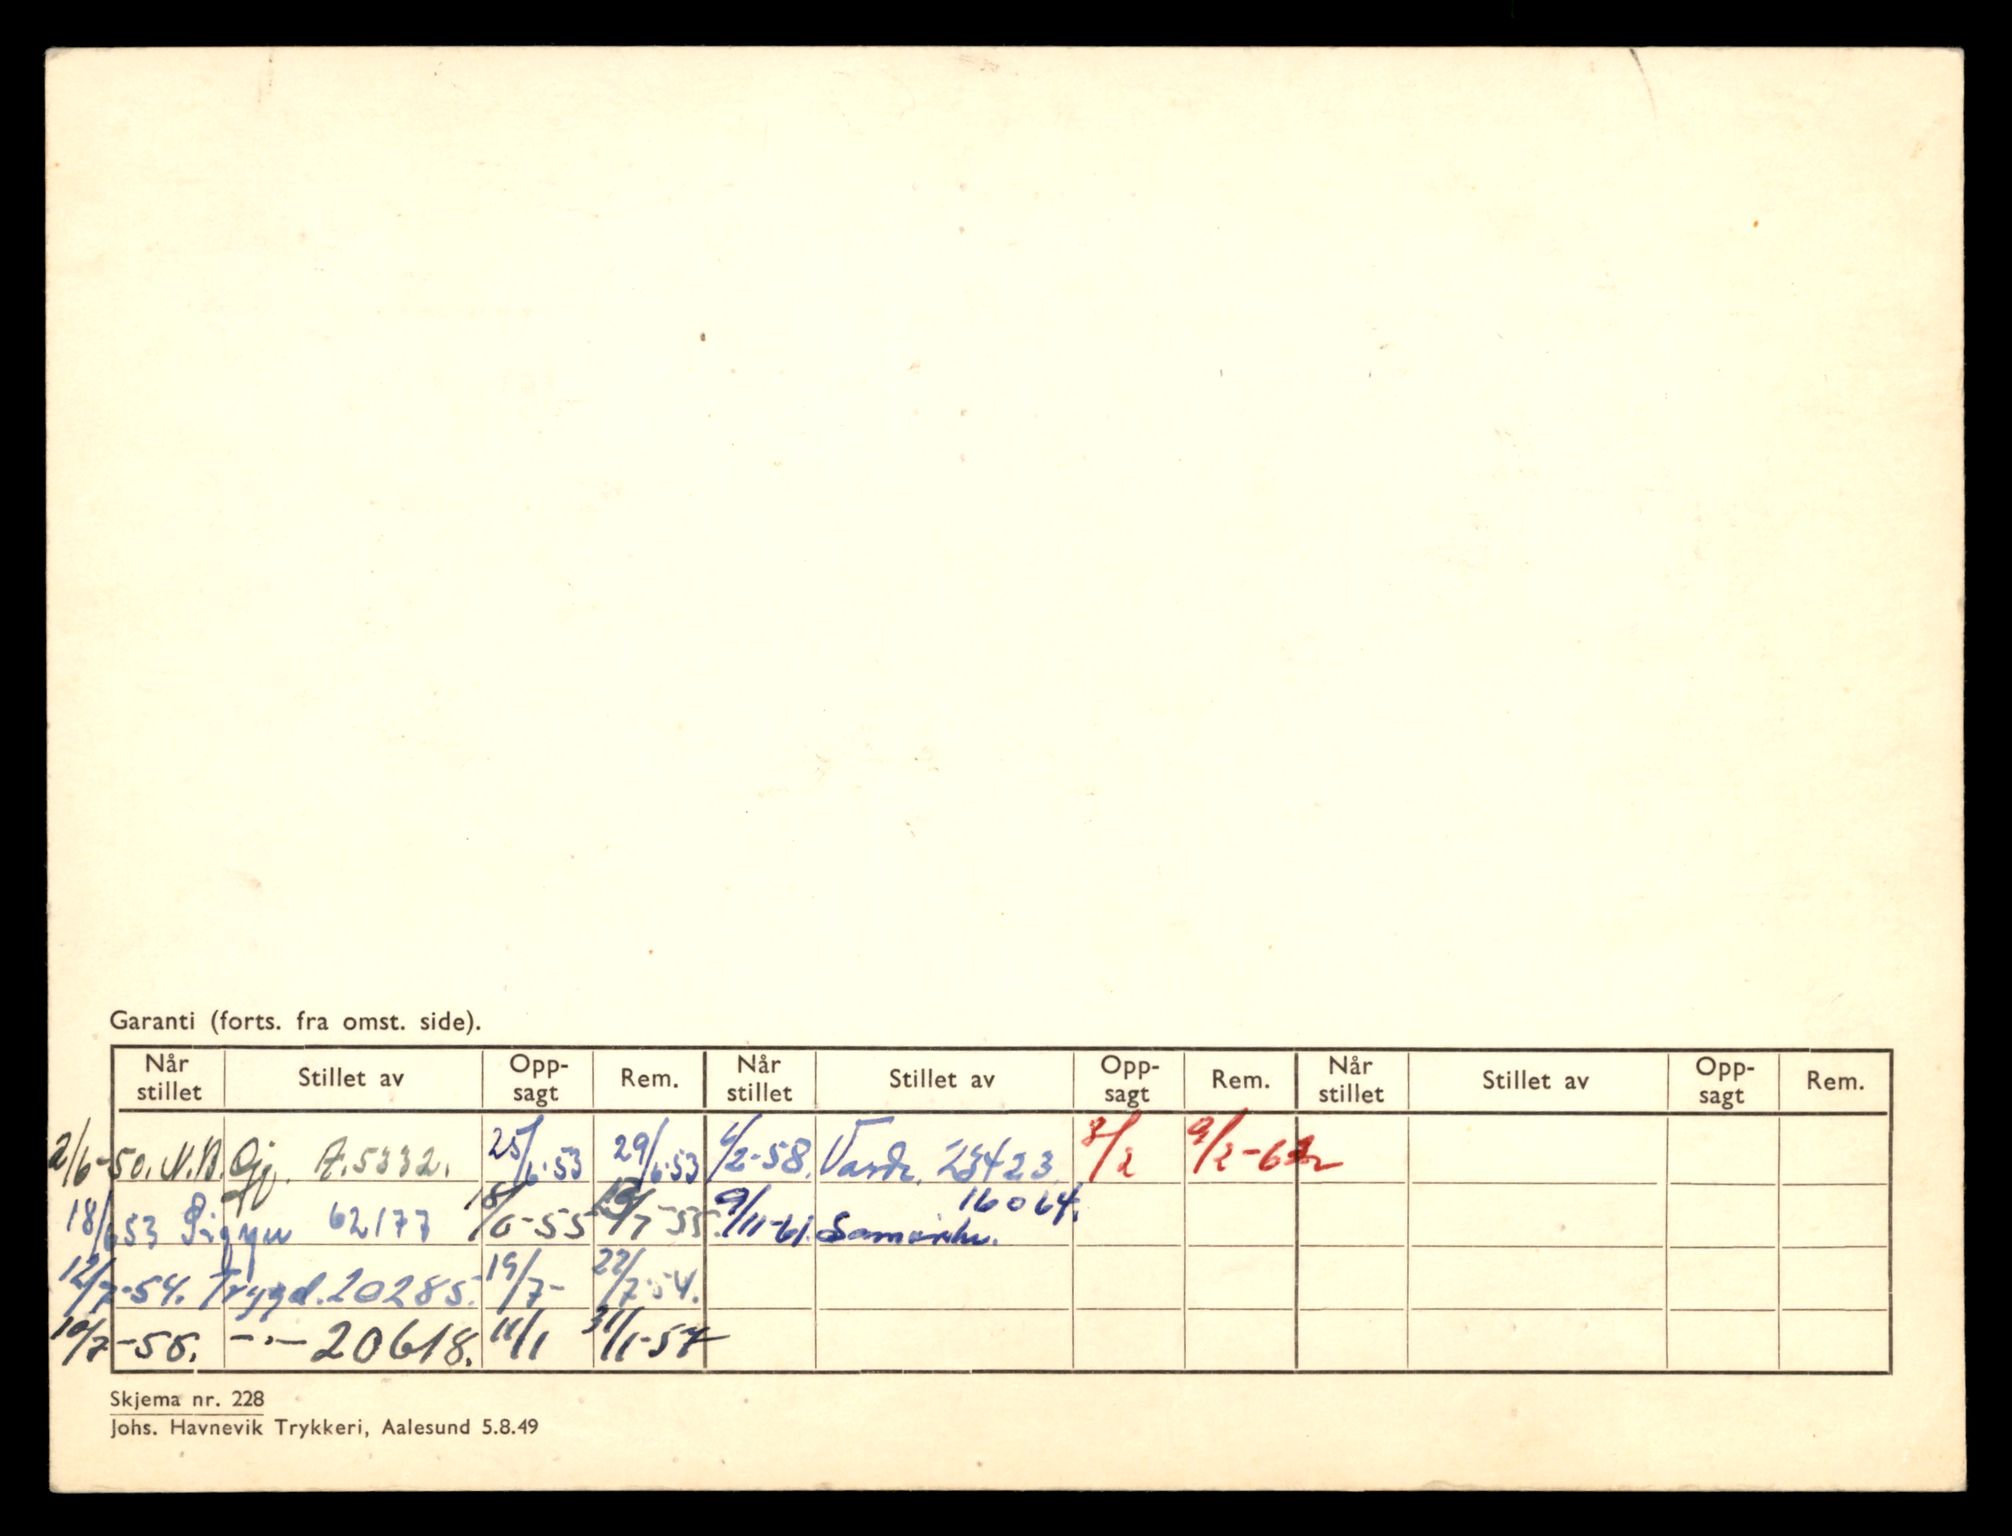 Garanti (forts. fra omst. side).
Når stillet Stillet av Opp-sagt Rem. Når stillet Stillet av Opp-sagt Rem. Når stillet Stillet av Opp-sagt Rem.
2/6-50. N.B. Gj. A.5332. 25/6-53 29/6-53 4/2-58. 23423. 8/2 9/2-62
18/6 53 Sigyn 62177 18/6-55 /7-55. 9/11-61. 16064.
12/7-54. Trygd. 20285. 19/7- 22/7-54.
10/7-55. -·- 20618. 11/1 31/1-57
Skjema nr. 228
Johs. Havnevik Trykkeri, Aalesund 5.8.49